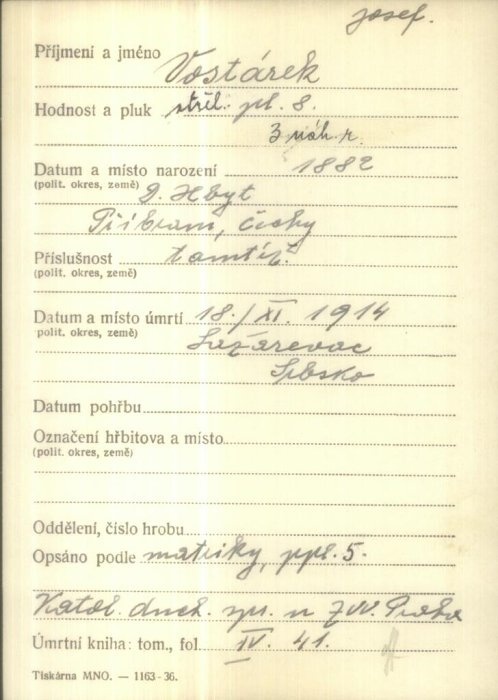 Josef.
Příjmení a jméno Vostárek
Hodnost a pluk střel. pl. 8.
3 náh. r.
Datum a místo narození 1882
(polit. okres, země)
D. Hbyt
Příbram, Čechy
Příslušnost tamtéž.
(polit. okres, země)
Datum a místo úmrtí 18./XI. 1914
polit. okres, země)
Lazarevac
Srbsko
Datum pohřbu
Označení hřbitova a místo
(polit. okres, země)
Oddělení, číslo hrobu
Opsáno podle matriky, ppl. 5.
Katol. duch. spr. u ZVV. Praha
Úmrtní kniha: tom., fol. IV. 41.
Tiskárna MNO. — 1163-36.